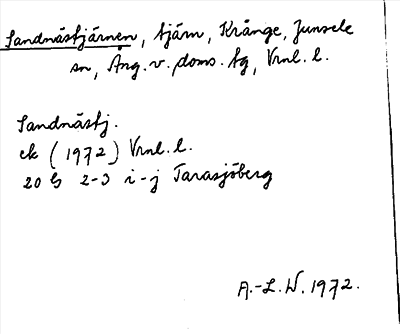 Sandnästjärnen, tjärn, Krånge, Junsele
sn, Ång. v. doms. tg, Vrnl. l.
Sandnästj.
ek (1972) Vrnl. l.
20 G 2-3 i-j Tarasjöberg
A.-L. W. 1972.